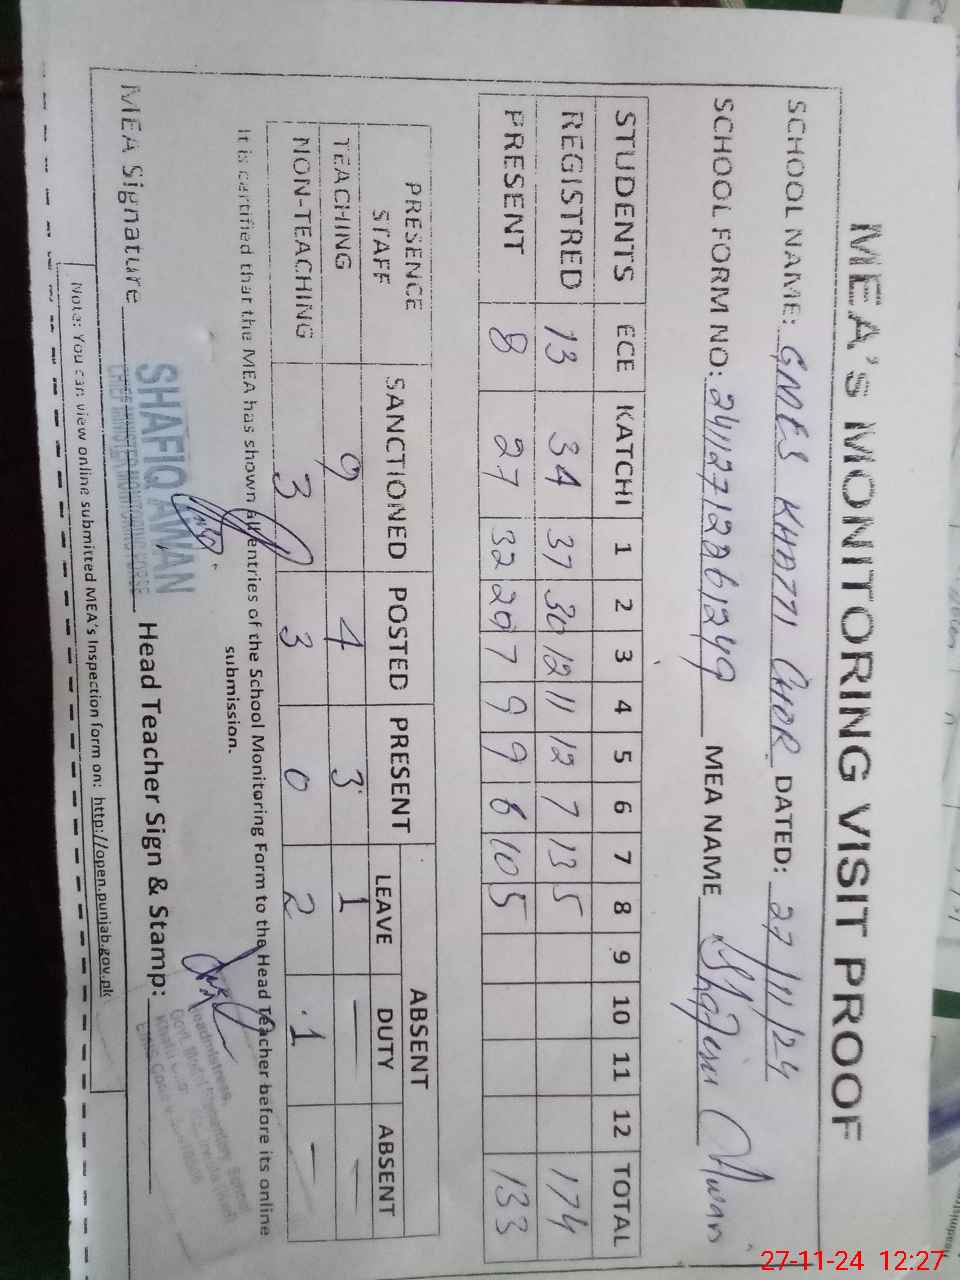 MEA's MONITORING VISIT PROOF
SCHOOL NAME: GMES KHATTI CHOR DATED: 27/11/24
SCHOOL FORM NO: MEA NAME Shafiq Awan
STUDENTS ECE KATCHI 1 2 3 4 5 6 7 8 9 10 11 12 TOTAL
REGISTRED 13 34 37 30 12 11 12 7 13 5 174
PRESENT 8 27 32 20 7 9 9 6 10 5 133
PRESENCE STAFF SANCTIONED POSTED PRESENT ABSENT
LEAVE DUTY ABSENT
TEACHING 9 4 3 1 — —
NON-TEACHING 3 3 0 2 1 —
It is certified that the MEA has shown all entries of the School Monitoring Form to the Head Teacher before its online
submission.
MEA Signature Head Teacher Sign & Stamp:
SHAFIQ AWAN
CHIEF MINISTER MONITORING FORCE
Headmistress
Note: You can view online submitted MEA's Inspection form on: http://open.punjab.gov.pk
27-11-24 12:27